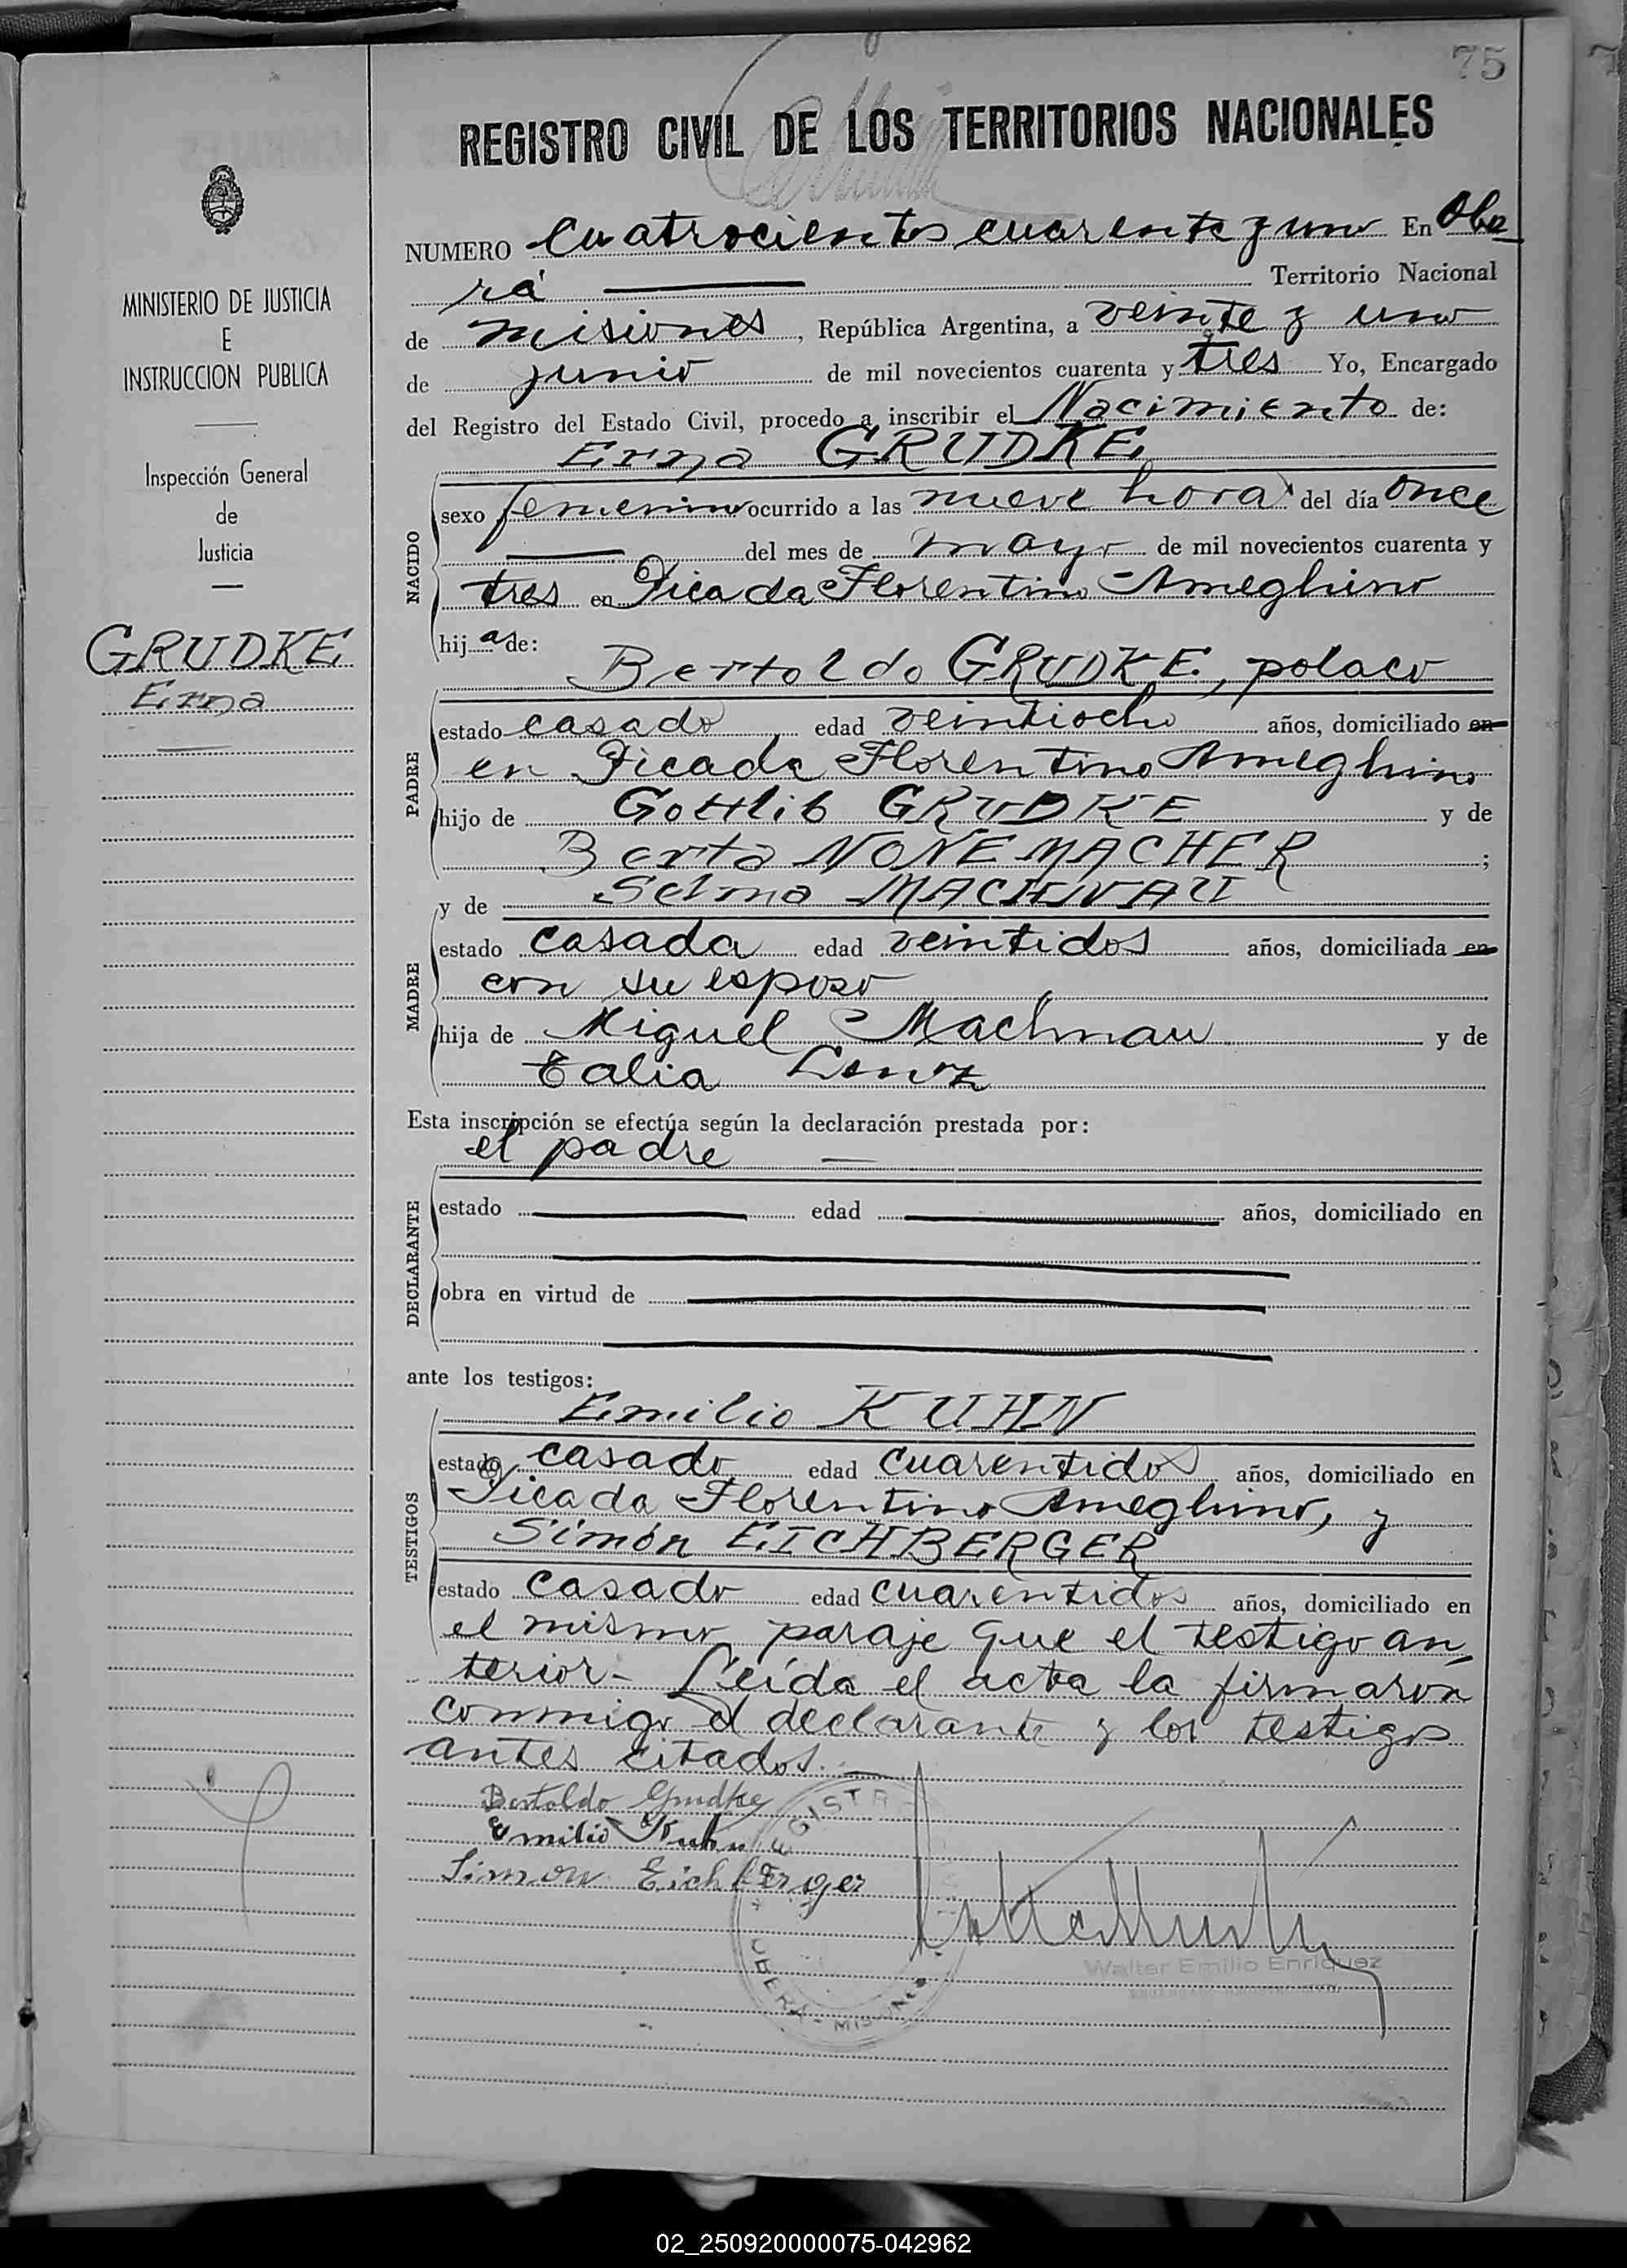 75
REGISTRO CIVIL DE LOS TERRITORIOS NACIONALES
MINISTERIO DE JUSTICIA
E
INSTRUCCION PUBLICA
Inspección General
de
Justicia
GRUDKE
Erna
NUMERO Cuatrocientos cuarenta y uno En Obe
rá Territorio Nacional
de misiones, República Argentina, a veinte y uno
de junio de mil novecientos cuarenta y tres Yo, Encargado
del Registro del Estado Civil, procedo a inscribir el Nacimiento de:
Erna GRUDKE
NACIDO
sexo femenino ocurrido a las nueve horas del día once
del mes de mayo de mil novecientos cuarenta y
tres en Picada Florentino Ameghino
hij a de:
Bertoldo GRUDKE, polaco
PADRE
estado casado edad veintiocho años, domiciliado en
en Picada Florentino Ameghino
hijo de Gottlib GRUDKE y de
Berta NONEMACHER ;
y de Selma MACHNAU
MADRE
estado casada edad veintidos años, domiciliada en
con su esposo
hija de Miguel Machnau y de
Talia Lenz
Esta inscripción se efectúa según la declaración prestada por:
el padre
DECLARANTE
estado edad años, domiciliado en
obra en virtud de
ante los testigos:
Emilio KUHN
TESTIGOS
estado casado edad cuarentidos años, domiciliado en
Picada Florentino Ameghino, y
Simón EICHBERGER
estado casado edad cuarentidos años, domiciliado en
el mismo paraje que el testigo an
terior- Leída el acta la firmaron
conmigo el declarante y los testigos
antes citados.
Bertoldo Grudke
Emilio Kuhn
Simon Eichberger
REGISTR
OBERA - MISIONES
Walter Emilio Enriquez
02_250920000075-042962